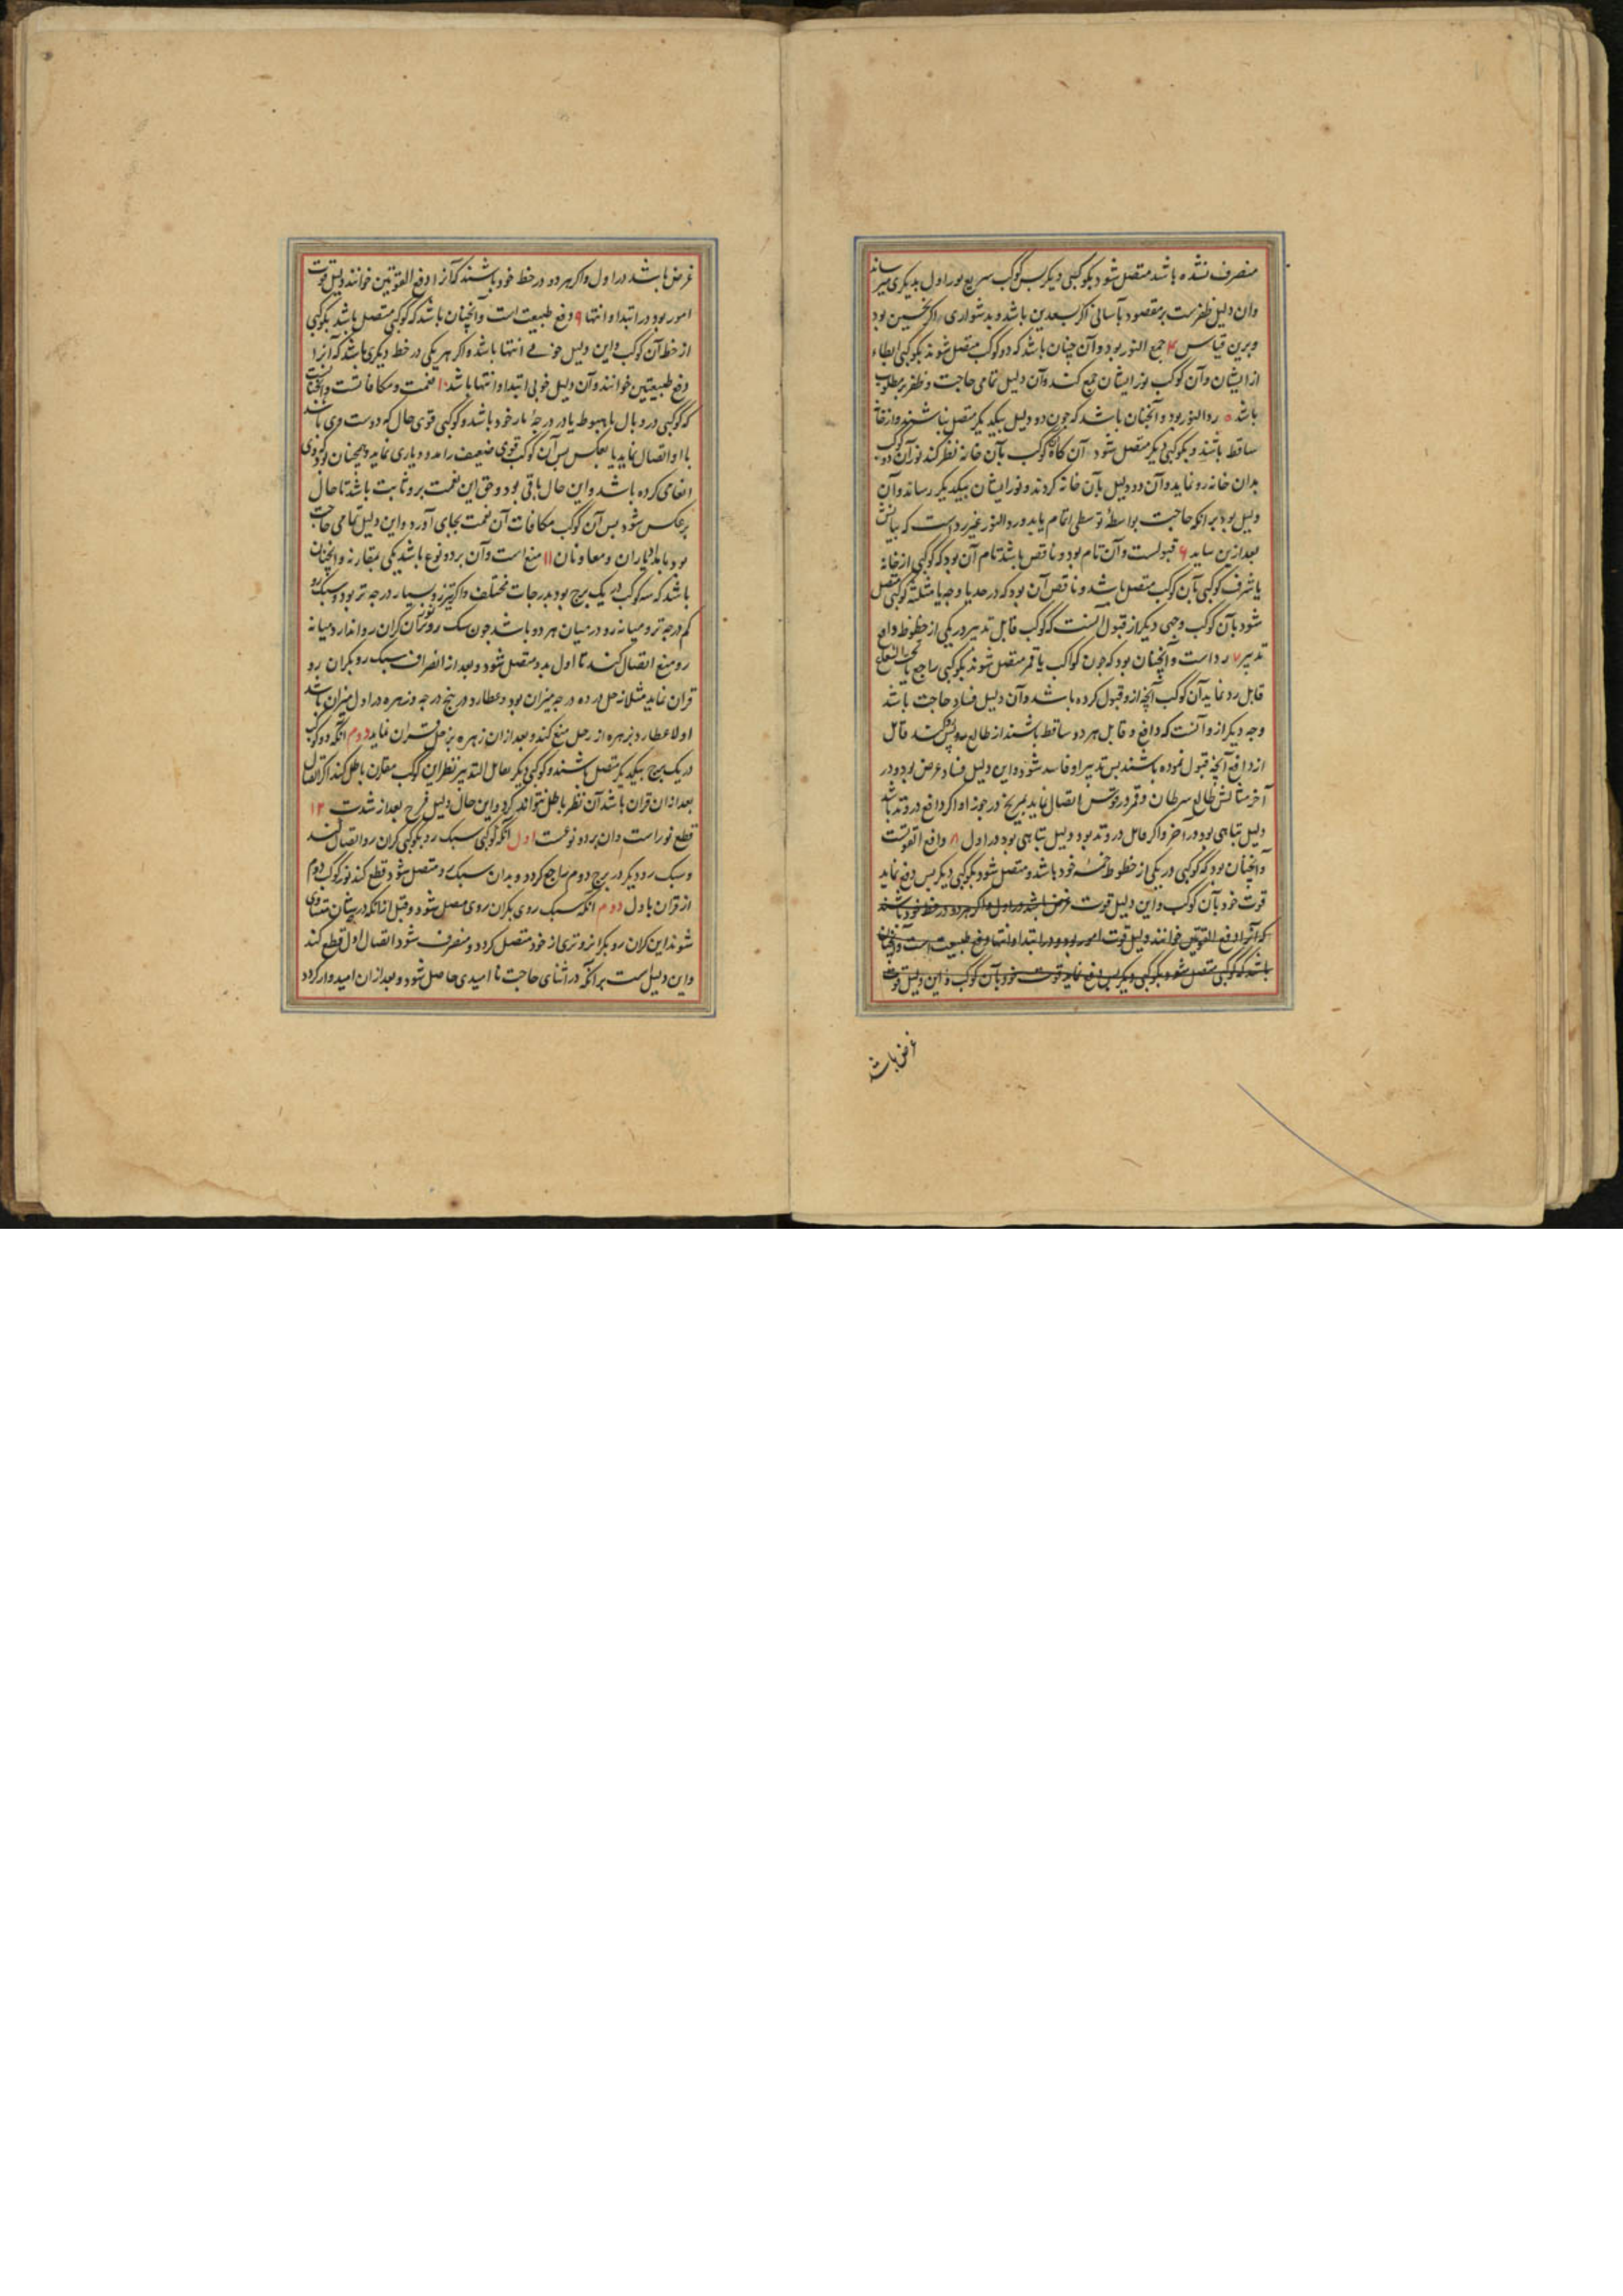 منصرف نشده باشد متصل شود بکوکبی دیکر پس کوکب سریع نور اول بدیکری میرساند
وان دلیل ظفرست بر مقصود بآسانی اکر سعدین باشد و بدشواری اکر نحسین بود
و برین قیاس ۴ جمع النور بود و آن چنان باشد که دو کوکب متصل شوند بکوکبی ابطاء
از ایشان و آن کوکب نور ایشان جمع کند و آن دلیل تمامی حاجت و ظفر بر مطلوب
باشد ۵ رد النور بود و آنچنان باشد که چون دو دلیل بیکدیکر متصل نباشند و از خانه
ساقط باشند و بکوکبی دیکر متصل شود آن کاه کوکب بآن خانه نظر کند نور آن دو کوکب
بدان خانه رو نماید و آن دو دلیل بآن خانه کردند و نور ایشان بیکدیکر رساند و آن
دلیل بود بر انکه حاجت بواسطهٔ توسطی اتمام یابد و رد النور غیر رد است که بیانش
بعد ازین بیاید ۶ قبولست و آن تام بود و ناقص باشد تام آن بود که کوکبی از خانه
یا شرف کوکبی بآن کوکب متصل باشد و ناقص آن بود که در حد یا وجه یا مثلثه کوکبی متصل
شود بآن کوکب وجهی دیکر از قبول آنست که کوکب قابل تدبیر در یکی از حظوظ دافع
تدبیر ۷ رد است و آنچنان بود که چون کواکب یا قمر متصل شوند بکوکبی راجع یا تحت الشعاع
قابل رد نماید آن کوکب آنچه ازو قبول کرده باشد و آن دلیل فساد حاجت باشد
وجه دیکر ازو آنست که دافع و قابل هر دو ساقط باشند از طالع قابل
از دافع آنچه قبول نموده باشند پس تدبیر او فاسد شود و این دلیل فساد غرض بود در
آخر مثالش طالع سرطان و قمر در قوس اتصال نماید بمریخ در جوزا و اکر دافع در وتد باشد
دلیل تباهی بود در آخر و اکر قابل در وتد بود دلیل تباهی بود در اول ۸ دافع القوتست
و آنچنان بود که کوکبی در یکی از حظوظ خمسه خود باشد و متصل شود بکوکبی دیکر پس دفع نماید
قوت خود بآن کوکب و این دلیل قوت غرض باشد در اول و اکر هر دو در حظ خود باشند
که آنرا دفع القوتین خوانند دلیل قوت امور بود در ابتدا و انتها دفع طبیعت است و آنچنان
باشد که کوکبی متصل شود بکوکبی دیکر پس دفع نماید قوت خود بآن کوکب و این دلیل قوت
غرض باشد
غرض باشد در اول و اکر هر دو در حظ خود باشند که آنرا دفع القوتین خوانند دلیل قوت
امور بود در ابتدا و انتها ۹ دفع طبیعت است و آنچنان باشد که کوکبی متصل باشد بکوکبی
از حظ آن کوکب و این دلیل خوبی انتها باشد و اکر هر یکی در حظ دیکری باشد که آنرا
دفع طبیعتین خوانند و آن دلیل خوبی ابتدا و انتها باشد ۱۰ نعمت و مکافاتست و آنچنانست
که کوکبی در وبال یا هبوط یا در درجهٔ بار خود باشد و کوکبی قوی حال که دوست وی باشد
با او اتصال نماید یا بعکس پس آن کوکب قوی ضعیف را مدد و یاری نماید و همچنان بود که کوئی
انعامی کرده باشد و این حال باقی بود و حق این نعمت برو ثابت باشد تا حال
برعکس شود پس آن کوکب مکافات آن نعمت بجای آورد و این دلیل تمامی حاجت
بود بامداد یاران و معاونان ۱۱ منع است و آن بر دو نوع باشد یکی بمقارنه و آنچنان
باشد که سه کوکب در یک برج بود بدرجات مختلف و اکر تیزرو بسیار درجه تر بود و سبک رو
کم درجه تر و میانه رو در میان هر دو باشد چون سبک رو قران کران رو اندارد میانه
رو منع اتصال کند تا اول بدو متصل شود و بعد از انصراف سبک رو بکران رو
قران نماید مثلا زحل در ده درجه میزان بود و عطارد در پنج درجه و زهره در اول میزان باشد
اولا عطارد زهره از زحل منع کند و بعد از ان زهره بزحل قران نماید دوم آنکه دو کوکب
در یک برج بیکدیکر متصل باشند و کوکبی دیکر بقابل التدبیر نظر این کوکب مقارن باطل کند اکر اتصال
بعد از ان قران باشد آن نظر باطل نتواند کرد و این حال دلیل فرح بعد از شدت ۱۲
قطع نور است و ان بر دو نوعست اول آنکه کوکبی سبک رو بکوکبی کران رو اتصال کند
و سبک رو دیکر در برج دوم راجع کردد و بدان سبک رو متصل شود و قطع کند نور کوکب دوم
از قران باول دوم آنکه سبک روی بکران روی متصل شود و قبل از انکه درستان متساوی
شوند این کران رو بکرانروتری از خود متصل کردد و منصرف شود اتصال اول قطع کند
و این دلیل است بر آنکه در اثنای حاجت نا امیدی حاصل شود و بعد از ان امیدوار کردد